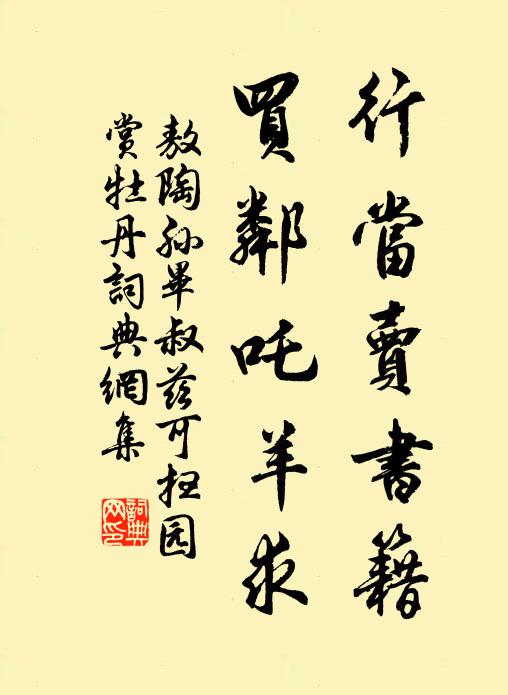 行當賣書籍
買鄰吒羊求
敖陶孫畢叔茲可园
賞牡丹詞典網集
詞典
網印